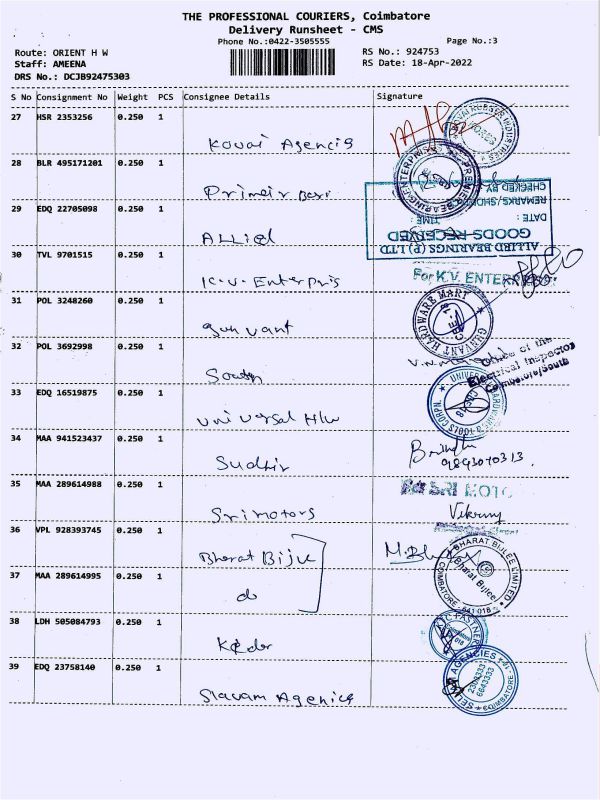 THE PROFESSIONAL COURIERS, Coimbatore
Delivery Runsheet - CMS
Phone No.:0422-3505555
Page No.:3
Route: ORIENT H W
RS No.: 924753
Staff: AMEENA
RS Date: 18-Apr-2022
DRS No.: DCJB92475303
S No Consignment No Weight PCS Consignee Details Signature
27 HSR 2353256 0.250 1
Kovai Agencis
28 BLR 495171201 0.250 1
PREMIER BEARING ENTERPRISES
CHECKED BY
REMARKS/SHORT
29 EDQ 22705098 0.250 1
DATE : TIME :
Allied
GOODS RECEIVED
ALLIED BEARINGS (P) LTD
30 TVL 9701515 0.250 1
K.V. Enterpris
For K.V. ENTERPRISES
31 POL 3248260 0.250 1
Gunvant
GUNVANT HARDWARE MART
32 POL 3692998 0.250 1
Office of the
Electrical Inspector
Coimbatore/South
South
33 EDQ 16519875 0.250 1
Universal H/w
UNIVERSAL HARDWARE & TOOLS CORPN.
34 MAA 941523437 0.250 1
Sudhir
35 MAA 289614988 0.250 1
SRI MOTO
Sri motors
36 VPL 928393745 0.250 1
Bharat Bijle
BHARAT BIJLEE LIMITED
Bharat Bijlee
COIMBATORE - 641 018
37 MAA 289614995 0.250 1
do
38 LDH 505084793 0.250 1
39 EDQ 23758140 0.250 1
AGENCIES
COIMBATORE